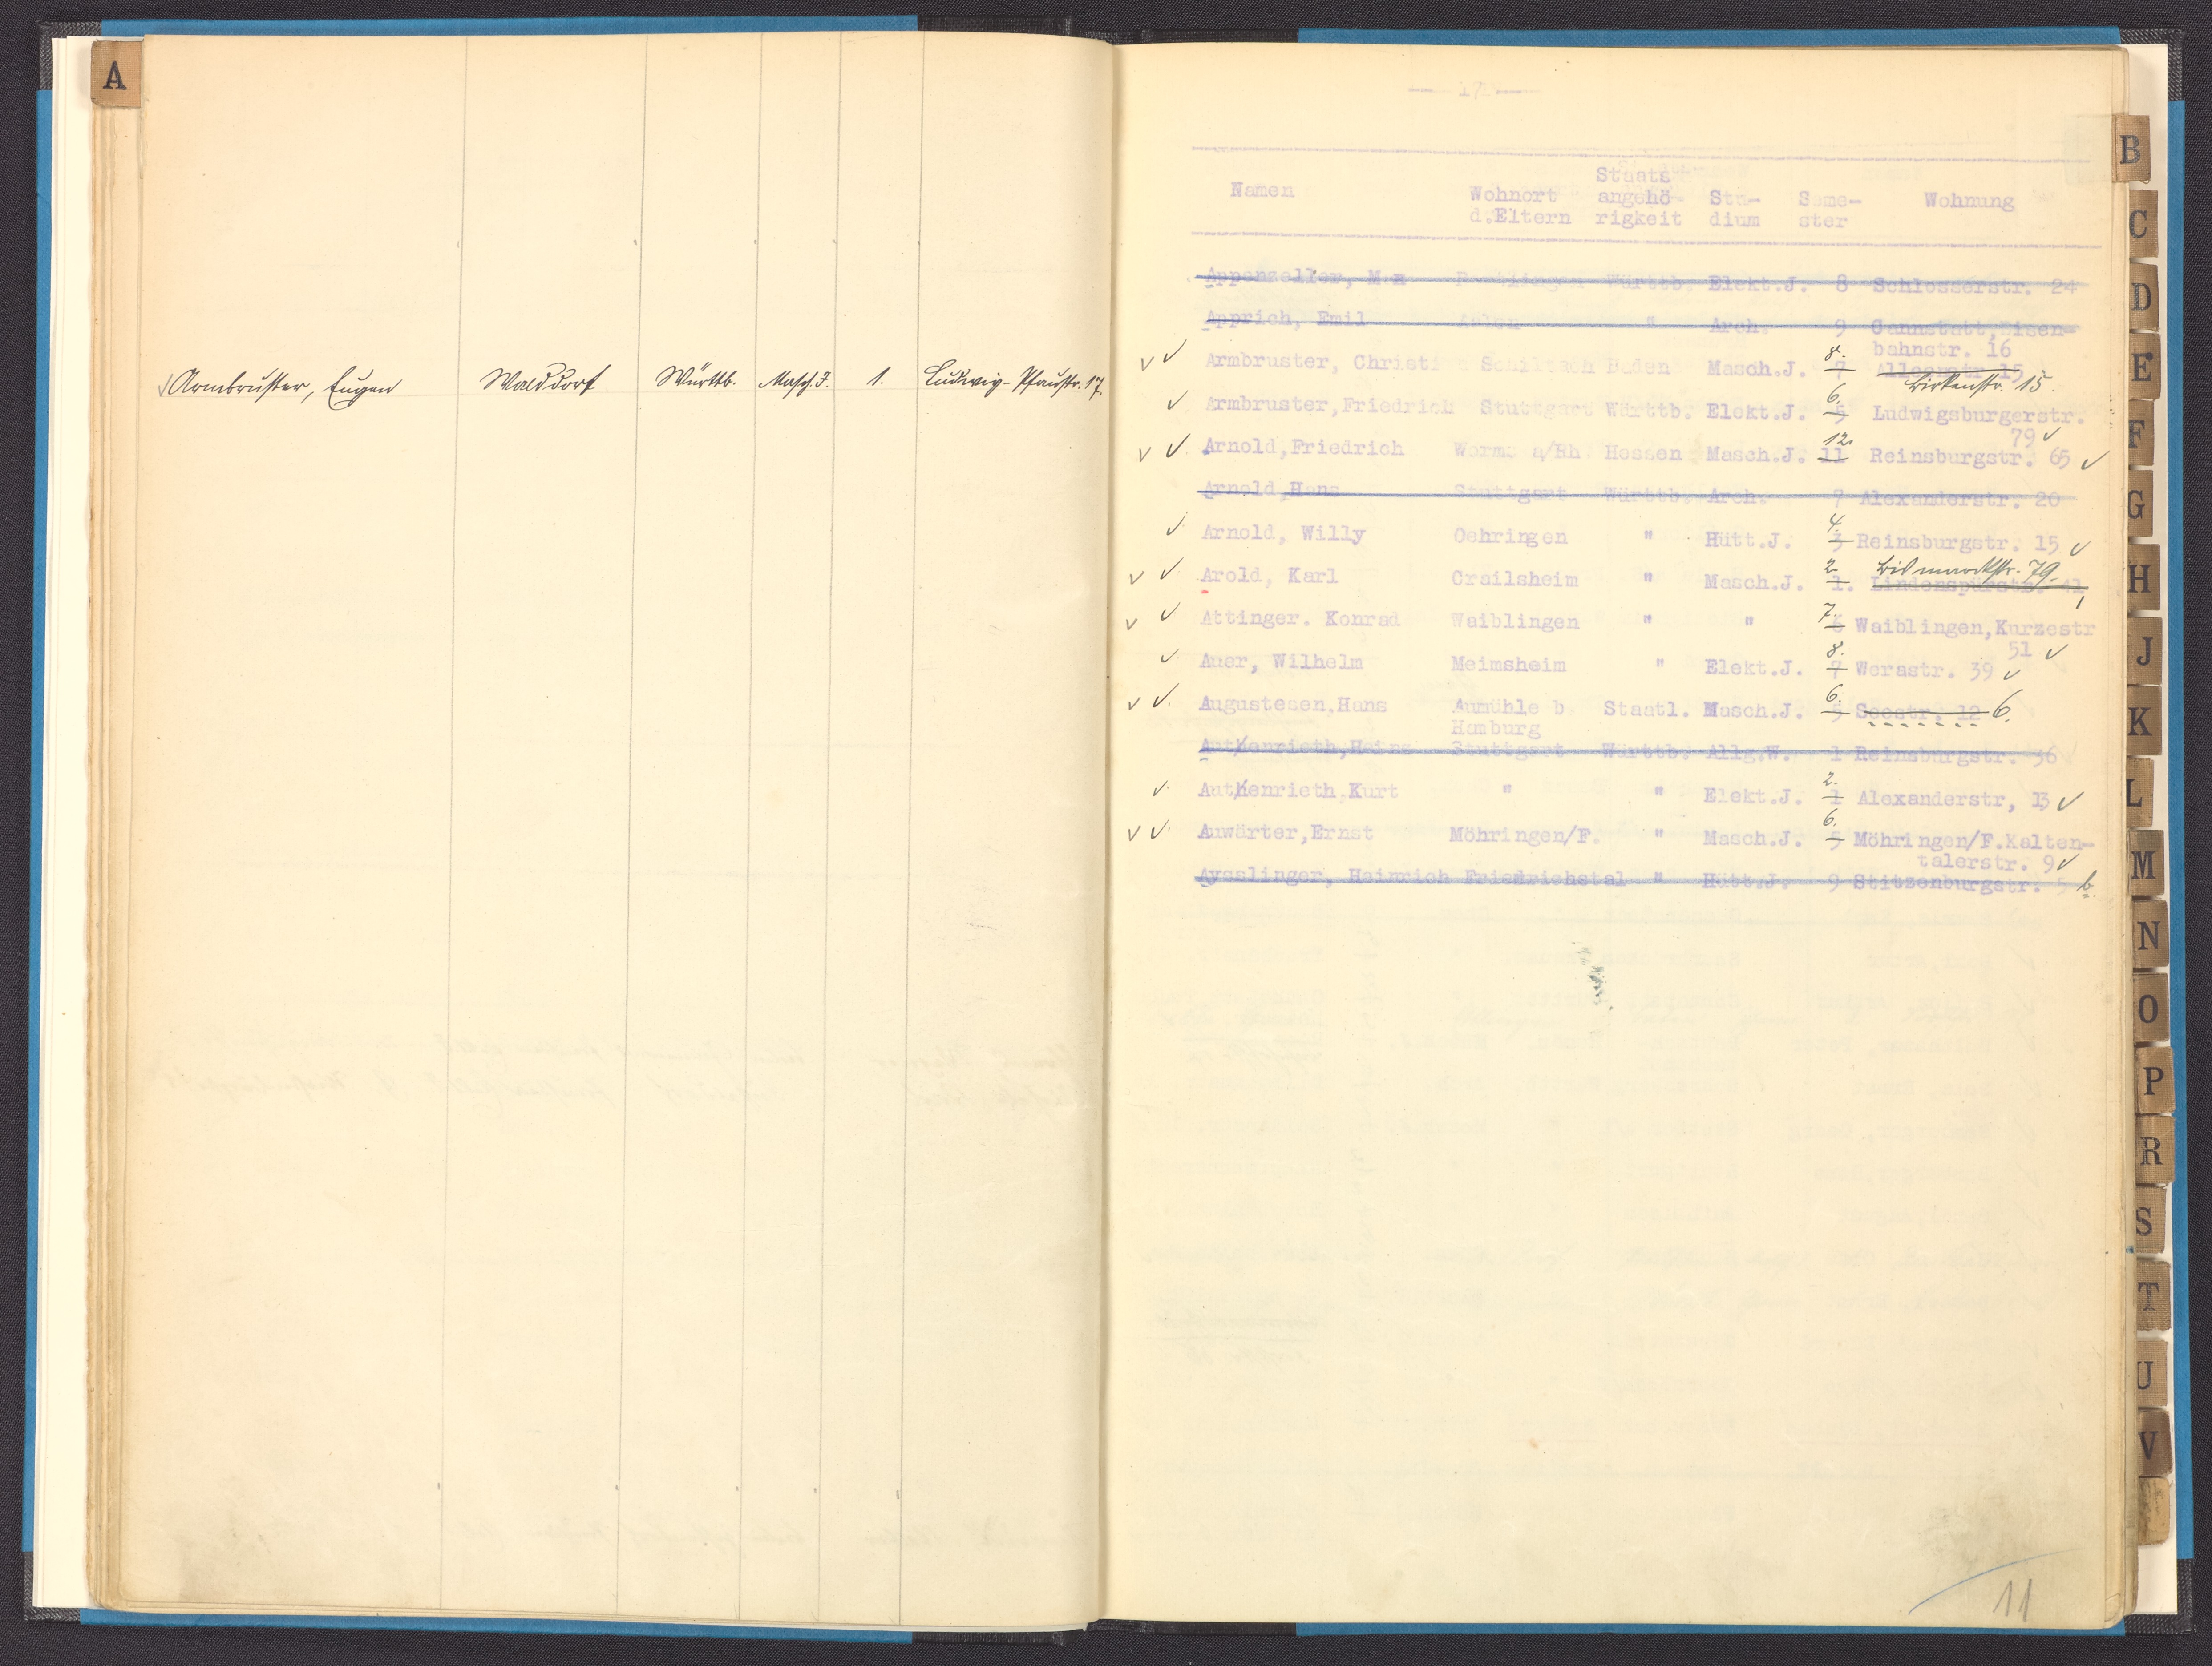 A
Armbruster, Eugen Walddorf Württb. Masch.J. 1. Ludwig-Pfaustr. 17.
Namen Wohnort d.Eltern Staats angehö- rigkeit Stu- dium Seme- ster Wohnung
Appenzeller, Württb. Elekt.J. 8 Schlosserstr. 24
Apprich, Emil Aalen " Arch. 9 Cannstatt, Eisen-
bahnstr. 16
Armbruster, Christian Schiltach Baden Masch.J. 7 8. 15
Birkenstr. 15.
Armbruster,Friedrich Stuttgart Württb. Elekt.J. 5 6. Ludwigsburgerstr.
79
Arnold,Friedrich Worms a/Rh Hessen Masch.J. 11 12. Reinsburgstr. 65
Arnold,Hans Stuttgart Württb. Arch. 7 Alexanderstr. 20
Arnold, Willy Oehringen " Hütt.J. 3 4. Reinsburgstr. 15
Bismarckstr. 79.
Arold, Karl Crailsheim " Masch.J. 1. 2. Lindenspürstr. 41
Attinger. Konrad Waiblingen " " 6 7. Waiblingen,Kurzestr
51
Auer, Wilhelm Meimsheim " Elekt.J. 7 8. Werastr. 39
Augustesen,Hans Aumühle b Staatl. Masch.J. 5 6. Seestr. 12 6.
Hamburg
Authenrieth,Heinz Stuttgart Württb. Allg.W. 1 Reinsburgstr. 36
Authenrieth,Kurt " " Elekt.J. 1 2. Alexanderstr, 13
Auwärter,Ernst Möhringen/F. " Masch.J. 5 6. Möhringen/F.Kalten-
talerstr. 9
Aysslinger, Heinrich Friedrichstal " Hütt.J. 9 Stitzenburgstr. 5 b.
11
B
C
D
E
F
G
H
J
K
L
M
N
O
P
R
S
T
U
V